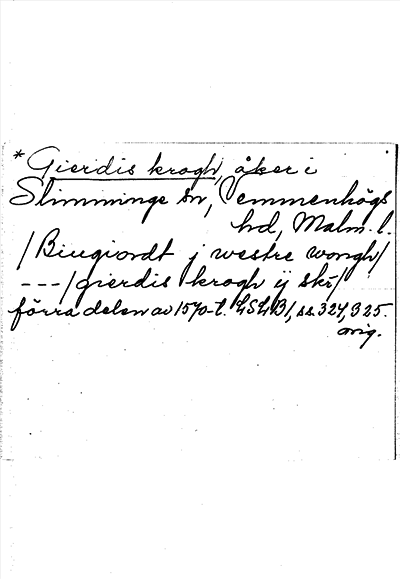 * Gierdis krogh, åker i
Slimminge sn, Vemmenhögs
hd, Malm. l.
/Biugiordt j westre wongh/
---/gierdis krogh ij skr/
förra delen av 1570-t. LSLB1, ss. 324, 325.
orig.